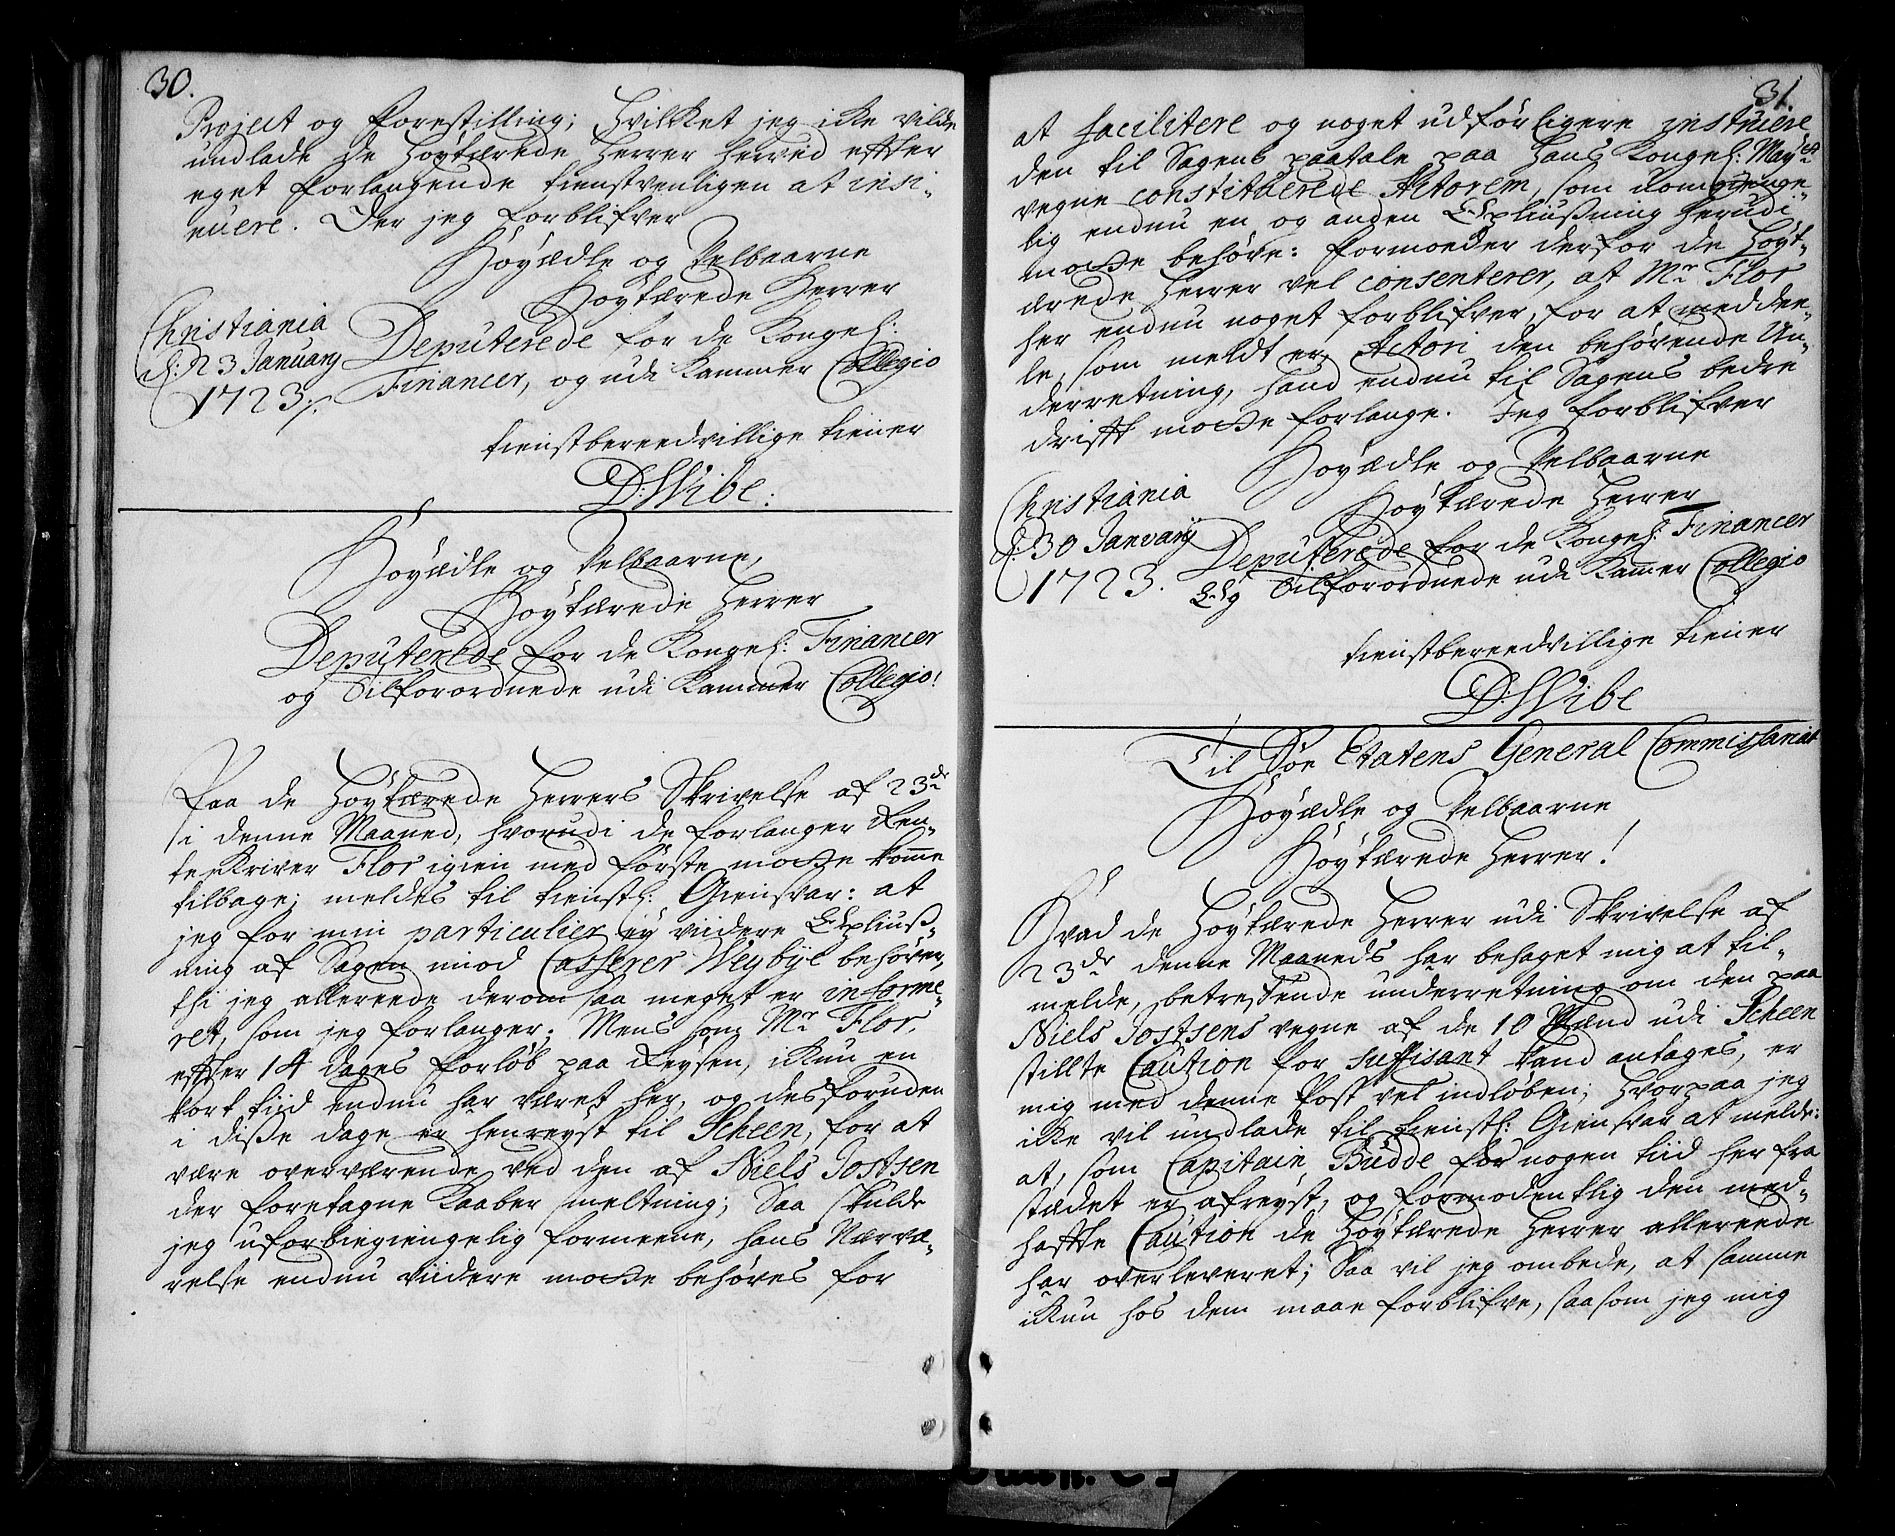 30.
Project og Forestilling; Hvilket jeg icke vilde
undlade De Høytærede Herrer herved effter
eget forlangende tienstvenligen at insi-
nuere. Der jeg forblifver
Høyædle og Velbaarne
Høytærede Herrer
Christiania
d: 23 January
1723
Deputerede for de Kongel:
Financer, og udi Kammer Collegio
tienstbereedvillige tiener
D: Wibe:
Høyædle og Velbaarne,
Høytærede Herrer
Deputerede for de Kongel: Financer
og Tilforordnede udi Kammer Collegio!
Paa de Høytærede Herrers Skrivelse af 23de
i denne Maaned, hvorudi de forlanger Ren-
teskriver Flor igien med første motte komme
tilbage; meldes til tienstl: Giensvar: at
jeg for min particulier ey viidere Expliuß-
ning af Sagen imod Casserer Weybye behøver,
thi jeg allereede derom saa meget er informe-
ret, som jeg forlanger; Mens som Mr Flor,
effter 14 dages forløb paa Reysen, ickun en
kort tiid endnu har været her, og desforuden
i diße dage er henreyst til Scheen, for at
være overværende ved den af Niels Jostsen
der foretagne Kaaber smeltning; Saa skulde
jeg uforbiegiengelig formeene, hans Nærvæ-
relse endnu viidere motte behøves for
31.
at facilitere og noget udførligere instruere
den til Sagens paatale paa Hans Kongel: Mayts
vegne constituerede Actorem, som
lig endnu en og anden Expliußning herudi
motte behøve: formoeder derfor de Høyt-
ærede Herrer vel consenterer, at Mr Flor
her endnu noget forblifver, for at meddee-
le, som meldt er, Actori den behøvende Un-
derretning, hand endnu til Sagens bedre
drifft motte forlange. Jeg forblifver
Høyædle og Velbaarne
Høytærede Herrer
Christiania
d: 30 January
1723.
Deputerede for de Kongel: Financer
Og Tilforordnede udi Kammer Collegio
tienstbereedvillige tiener
D: Wibe
Til Søe Etatens General Commissariat
Høyædle og Velbaarne
Høytærede Herrer!
Hvad de Høytærede Herrer udi Skrivelse af
23de denne Maaneds har behaget mig at til-
melde, betreffende underretning om den paa
Niels Jostsens vegne af de 10 Mænd udi Scheen
stillte Caution for suffisant kand antages, er
mig med denne Post vel indløben; Hvorpaa jeg
icke vil undlade til tienstl: Giensvar at melde:
at, som Capitain Budde for nogen tiid her fra
stædet er afreyst, og formodentlig den med-
haffte Caution de Høytærede Herrer allereede
har overleveret; Saa vil jeg ombede, at samme
ickun hos dem maae forblifve, saasom jeg mig